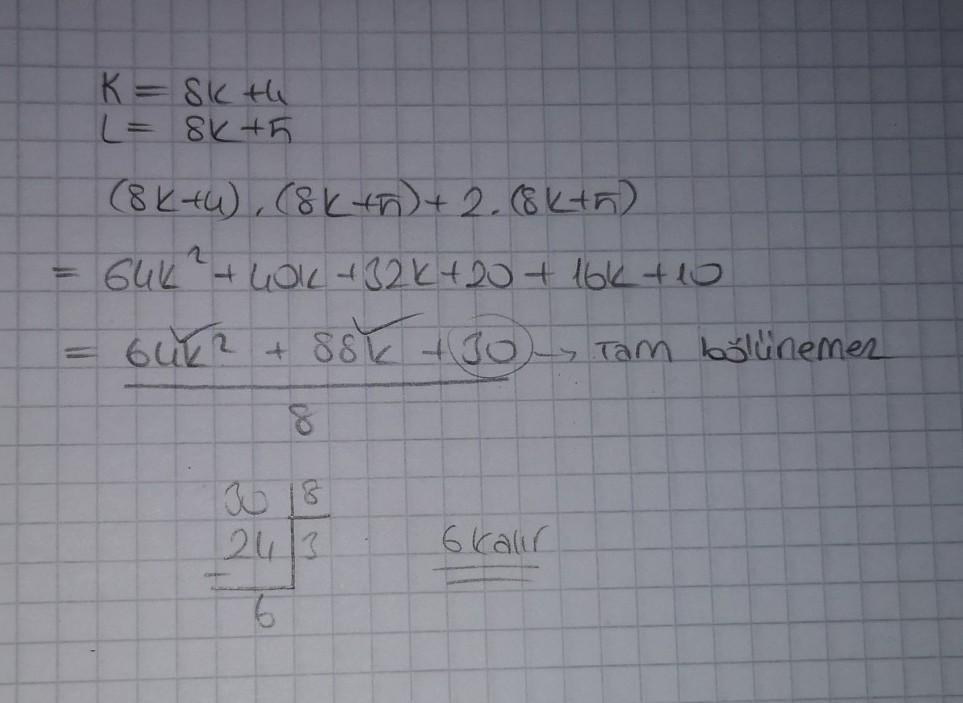 K = 8k+4
L = 8k+5
(8k+4).(8k+5)+2.(8k+5)
= 64k²+40k+32k+20+16k+10
= 64k² + 88k + 30 → Tam bölünemez
8
30 8
24 3
6 kalır
6